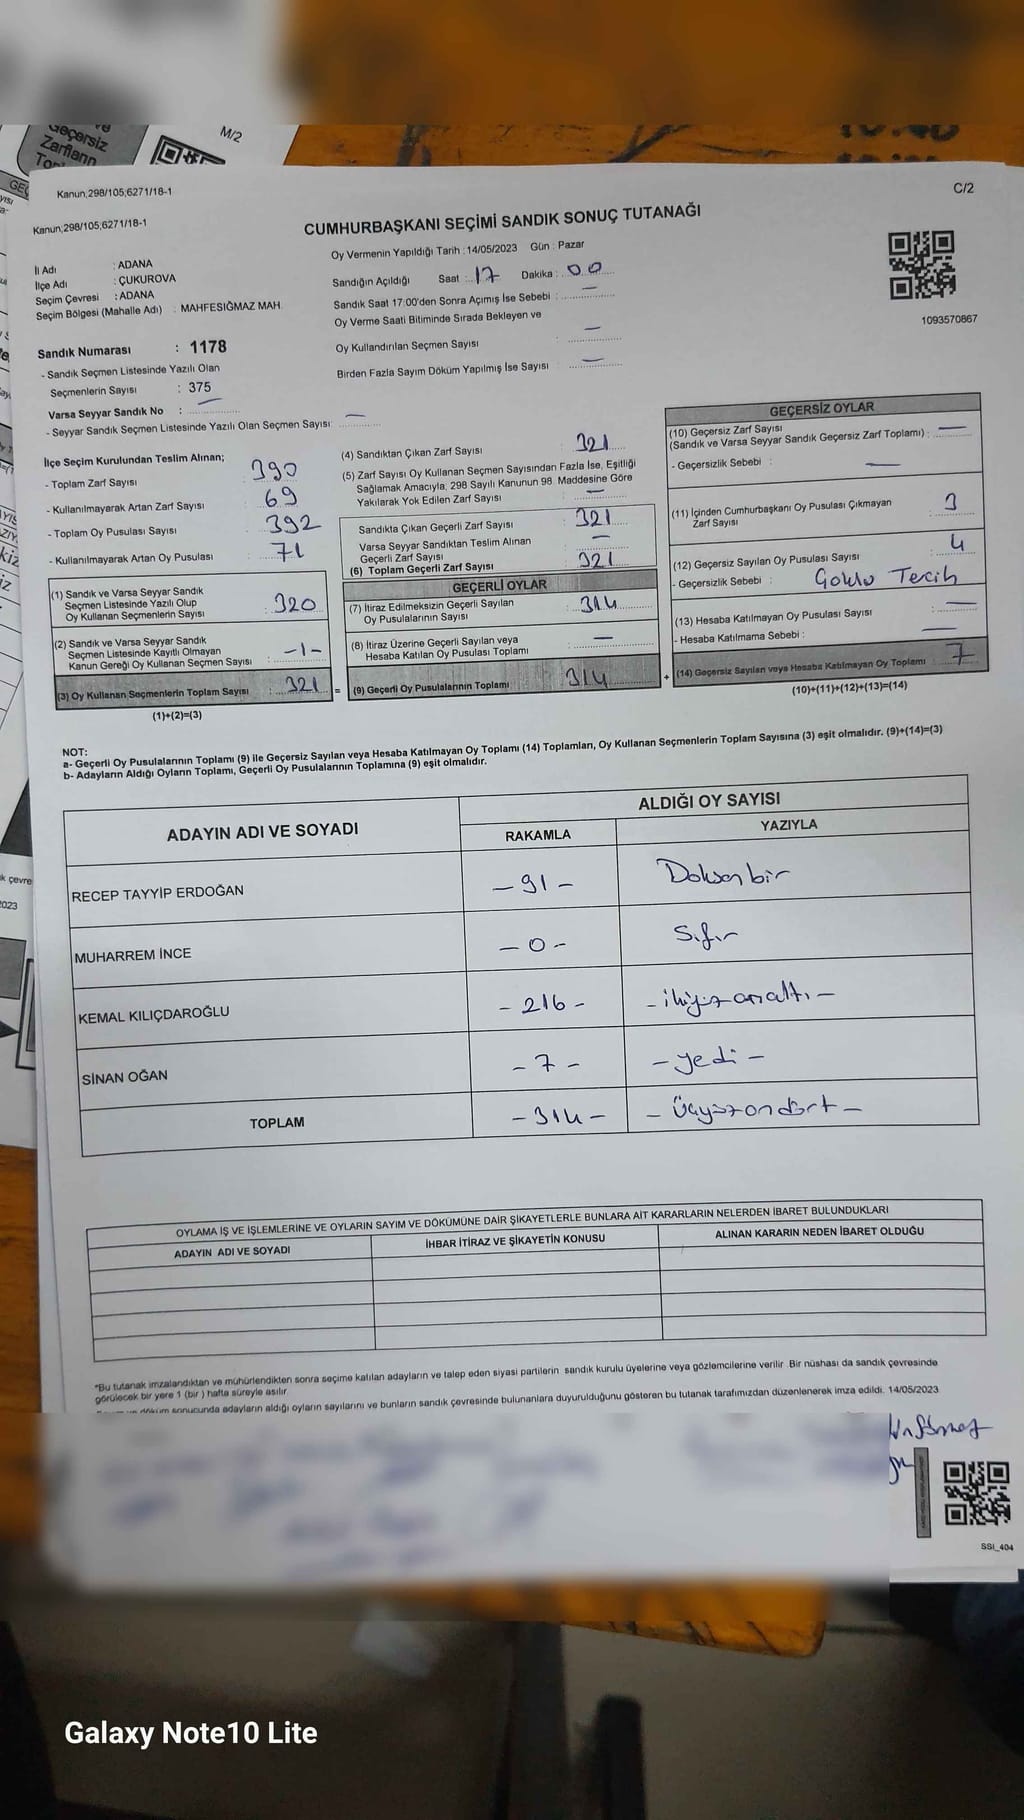 Geçersiz
Zarfların
M/2
Kanun,298/105;6271/18-1
C/2
Kanun;298/105;6271/18-1
CUMHURBAŞKANI SEÇİMİ SANDIK SONUÇ TUTANAĞI
İl Adı : ADANA
İlçe Adı : ÇUKUROVA
Seçim Çevresi : ADANA
Seçim Bölgesi (Mahalle Adı) : MAHFESIĞMAZ MAH.
Oy Vermenin Yapıldığı Tarih : 14/05/2023 Gün : Pazar
Sandığın Açıldığı Saat : 17 Dakika : 00
Sandık Saat 17:00'den Sonra Açımış İse Sebebi : —
Oy Verme Saati Bitiminde Sırada Bekleyen ve
Oy Kullandırılan Seçmen Sayısı : —
Birden Fazla Sayım Döküm Yapılmış İse Sayısı : —
1093570867
Sandık Numarası : 1178
- Sandık Seçmen Listesinde Yazılı Olan
Seçmenlerin Sayısı : 375
Varsa Seyyar Sandık No : —
- Seyyar Sandık Seçmen Listesinde Yazılı Olan Seçmen Sayısı: —
İlçe Seçim Kurulundan Teslim Alınan;
- Toplam Zarf Sayısı : 390
- Kullanılmayarak Artan Zarf Sayısı : 69
- Toplam Oy Pusulası Sayısı : 392
- Kullanılmayarak Artan Oy Pusulası : 71
(1) Sandık ve Varsa Seyyar Sandık
Seçmen Listesinde Yazılı Olup
Oy Kullanan Seçmenlerin Sayısı : 320
(2) Sandık ve Varsa Seyyar Sandık
Seçmen Listesinde Kayıtlı Olmayan
Kanun Gereği Oy Kullanan Seçmen Sayısı : -1-
(3) Oy Kullanan Seçmenlerin Toplam Sayısı : 321
(1)+(2)=(3)
(4) Sandıktan Çıkan Zarf Sayısı : 321
(5) Zarf Sayısı Oy Kullanan Seçmen Sayısından Fazla İse, Eşitliği
Sağlamak Amacıyla, 298 Sayılı Kanunun 98. Maddesine Göre
Yakılarak Yok Edilen Zarf Sayısı : —
Sandıkta Çıkan Geçerli Zarf Sayısı : 321
Varsa Seyyar Sandıktan Teslim Alınan
Geçerli Zarf Sayısı : —
(6) Toplam Geçerli Zarf Sayısı : 321
GEÇERLİ OYLAR
(7) İtiraz Edilmeksizin Geçerli Sayılan
Oy Pusulalarının Sayısı : 314
(8) İtiraz Üzerine Geçerli Sayılan veya
Hesaba Katılan Oy Pusulası Toplamı : —
= (9) Geçerli Oy Pusulalarının Toplamı 314
GEÇERSİZ OYLAR
(10) Geçersiz Zarf Sayısı
(Sandık ve Varsa Seyyar Sandık Geçersiz Zarf Toplamı) : —
- Geçersizlik Sebebi : —
(11) İçinden Cumhurbaşkanı Oy Pusulası Çıkmayan
Zarf Sayısı : 3
(12) Geçersiz Sayılan Oy Pusulası Sayısı : 4
- Geçersizlik Sebebi : Çoklu Tercih
(13) Hesaba Katılmayan Oy Pusulası Sayısı : —
- Hesaba Katılmama Sebebi : —
+ (14) Geçersiz Sayılan veya Hesaba Katılmayan Oy Toplamı : 7
(10)+(11)+(12)+(13)=(14)
NOT:
a- Geçerli Oy Pusulalarının Toplamı (9) ile Geçersiz Sayılan veya Hesaba Katılmayan Oy Toplamı (14) Toplamları, Oy Kullanan Seçmenlerin Toplam Sayısına (3) eşit olmalıdır. (9)+(14)=(3)
b- Adayların Aldığı Oyların Toplamı, Geçerli Oy Pusulalarının Toplamına (9) eşit olmalıdır.
ADAYIN ADI VE SOYADI
ALDIĞI OY SAYISI
RAKAMLA YAZIYLA
RECEP TAYYİP ERDOĞAN -91- Doksanbir
MUHARREM İNCE -0- Sıfır
KEMAL KILIÇDAROĞLU -216- -ikiyüzonaltı-
SİNAN OĞAN -7- -yedi-
TOPLAM -314- -Üçyüzondört-
OYLAMA İŞ VE İŞLEMLERİNE VE OYLARIN SAYIM VE DÖKÜMÜNE DAİR ŞİKAYETLERLE BUNLARA AİT KARARLARIN NELERDEN İBARET BULUNDUKLARI
ADAYIN ADI VE SOYADI İHBAR İTİRAZ VE ŞİKAYETİN KONUSU ALINAN KARARIN NEDEN İBARET OLDUĞU
*Bu tutanak imzalandıktan ve mühürlendikten sonra seçime katılan adayların ve talep eden siyasi partilerin sandık kurulu üyelerine veya gözlemcilerine verilir. Bir nüshası da sandık çevresinde
görülecek bir yere 1 (bir ) hafta süreyle asılır.
döküm sonucunda adayların aldığı oyların sayılarını ve bunların sandık çevresinde bulunanlara duyurulduğunu gösteren bu tutanak tarafımızdan düzenlenerek imza edildi. 14/05/2023
SSI_404
Galaxy Note10 Lite